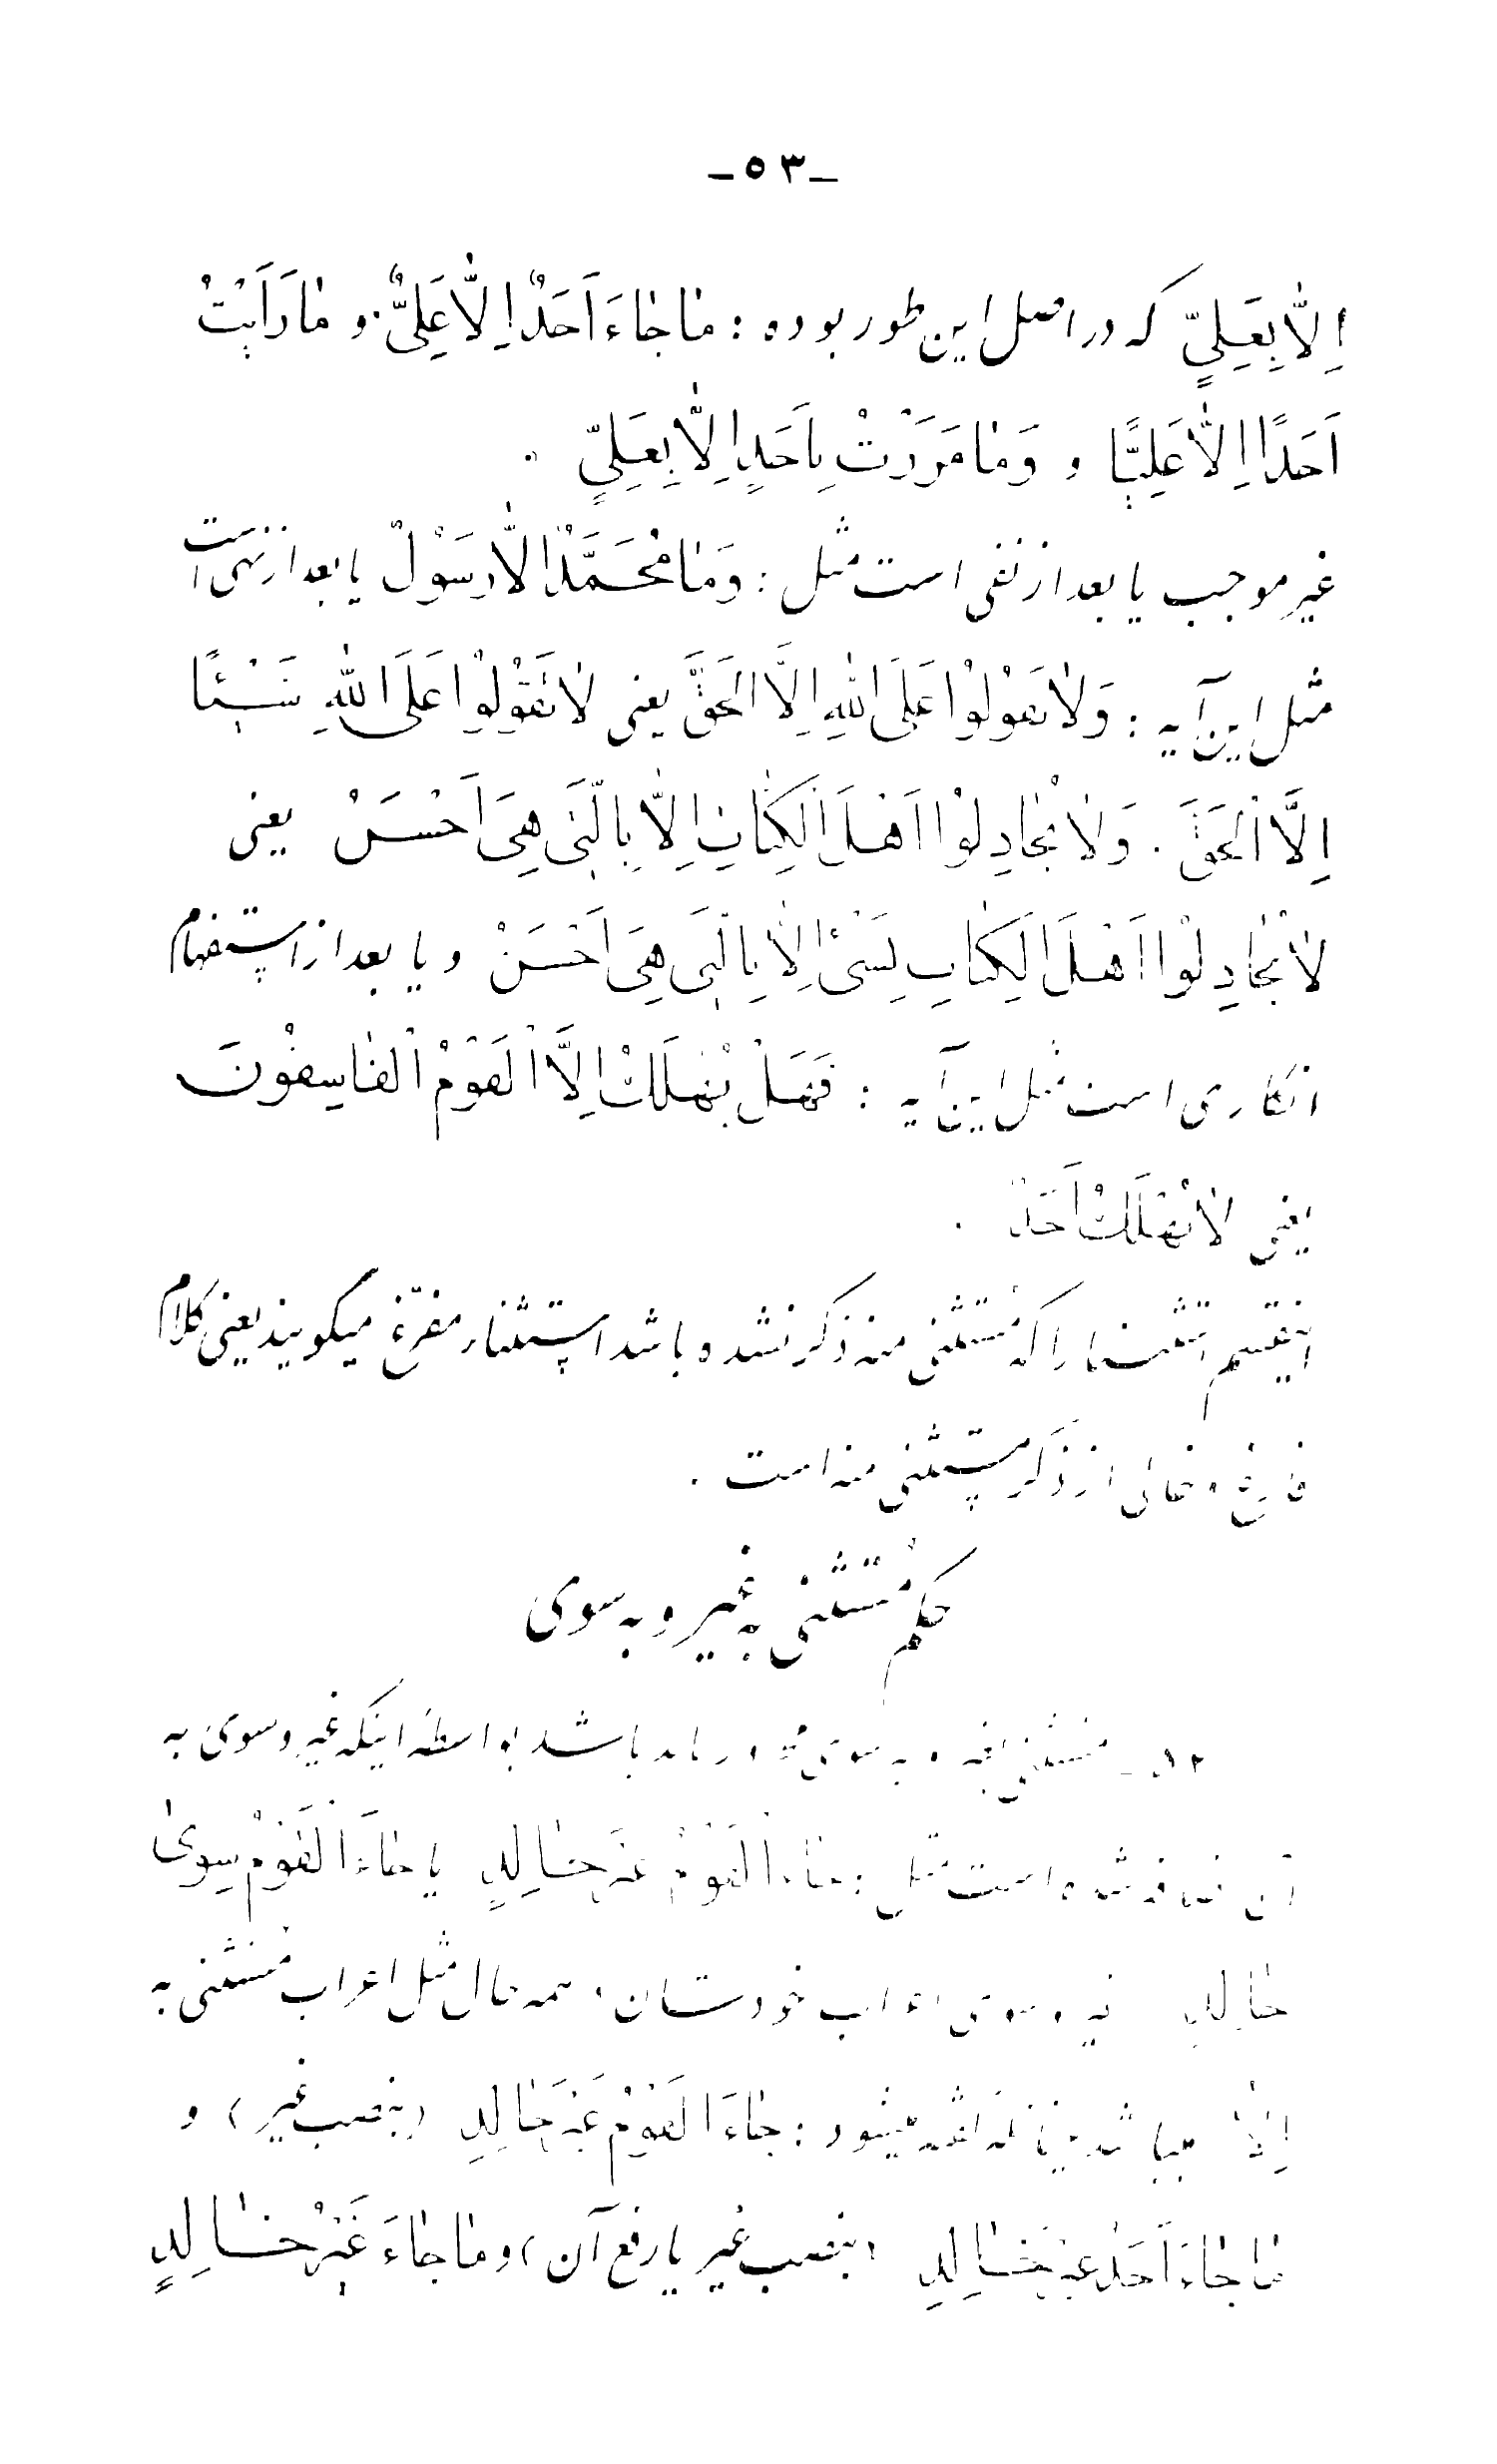 -۵۳-
اِلّا بِعَلِيٍّ که در اصل این طور بوده : مٰا جٰاءَ اَحَدٌ اِلّا عَلِيٌّ . و مٰا رَاَيْتُ
اَحَدًا اِلّا عَلِيًّا و وَمٰا مَرَرْتُ بِاَحَدٍ اِلّا بِعَلِيٍّ .
غیر موجب یا بعد از نفی است مثل : وَمٰا مُحَمَّدٌ اِلّا رَسُوْلٌ یا بعد از نهی است
مثل این آیه : وَلاٰ تَقُوْلُوْا عَلَى اللهِ اِلَّا الْحَقَّ یعنی لاٰ تَقُوْلُوْا عَلَى اللهِ شَيْئًا
اِلَّا الْحَقَّ . وَلاٰ تُجٰادِلُوْا اَهْلَ الْكِتٰابِ اِلّا بِالَّتى هِىَ اَحْسَنْ یعنی
لاٰ تُجٰادِلُوْا اَهْلَ الْكِتٰابِ بِشَىْءٍ اِلّا بِالَّتى هِىَ اَحْسَنْ و یا بعد از استفهام
انکاری است مثل این آیه : فَهَلْ يُهْلَكُ اِلَّا الْقَوْمُ الْفٰاسِقُوْنَ
یعنی لاٰ يُهْلَكُ اَحَدٌ .
اینقسم استثناء را که مُستثنی منه ذکر نشده باشد استثناء مفرّغ میگویند یعنی کلام
فارغ و خالی از ذکر مستثنی منه است .
حکم مُستثنی به غیر و به سوی
مُستثنی بغیر و به سوی باید باشد بواسطهٔ اینکه غیر و سوی به
آن اضافه شده است مثل : جٰاءَ الْقَوْمُ غَيْرَ خٰالِدٍ یا جٰاءَ الْقَوْمُ سِوىٰ
خٰالِدٍ غیر و سوی اعراب خودشان همه حال مثل اعراب مُستثنی به
اِلّا میباشد چنانکه گفته میشود : جٰاءَ الْقَوْمُ غَيْرَ خٰالِدٍ (بنصب غیر) و
مٰا جٰاءَ اَحَدٌ غَيْرَ خٰالِدٍ (بنصب غیر یا رفع آن) و مٰا جٰاءَ غَيْرُ خٰالِدٍ